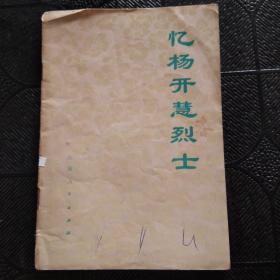 忆杨开慧烈士